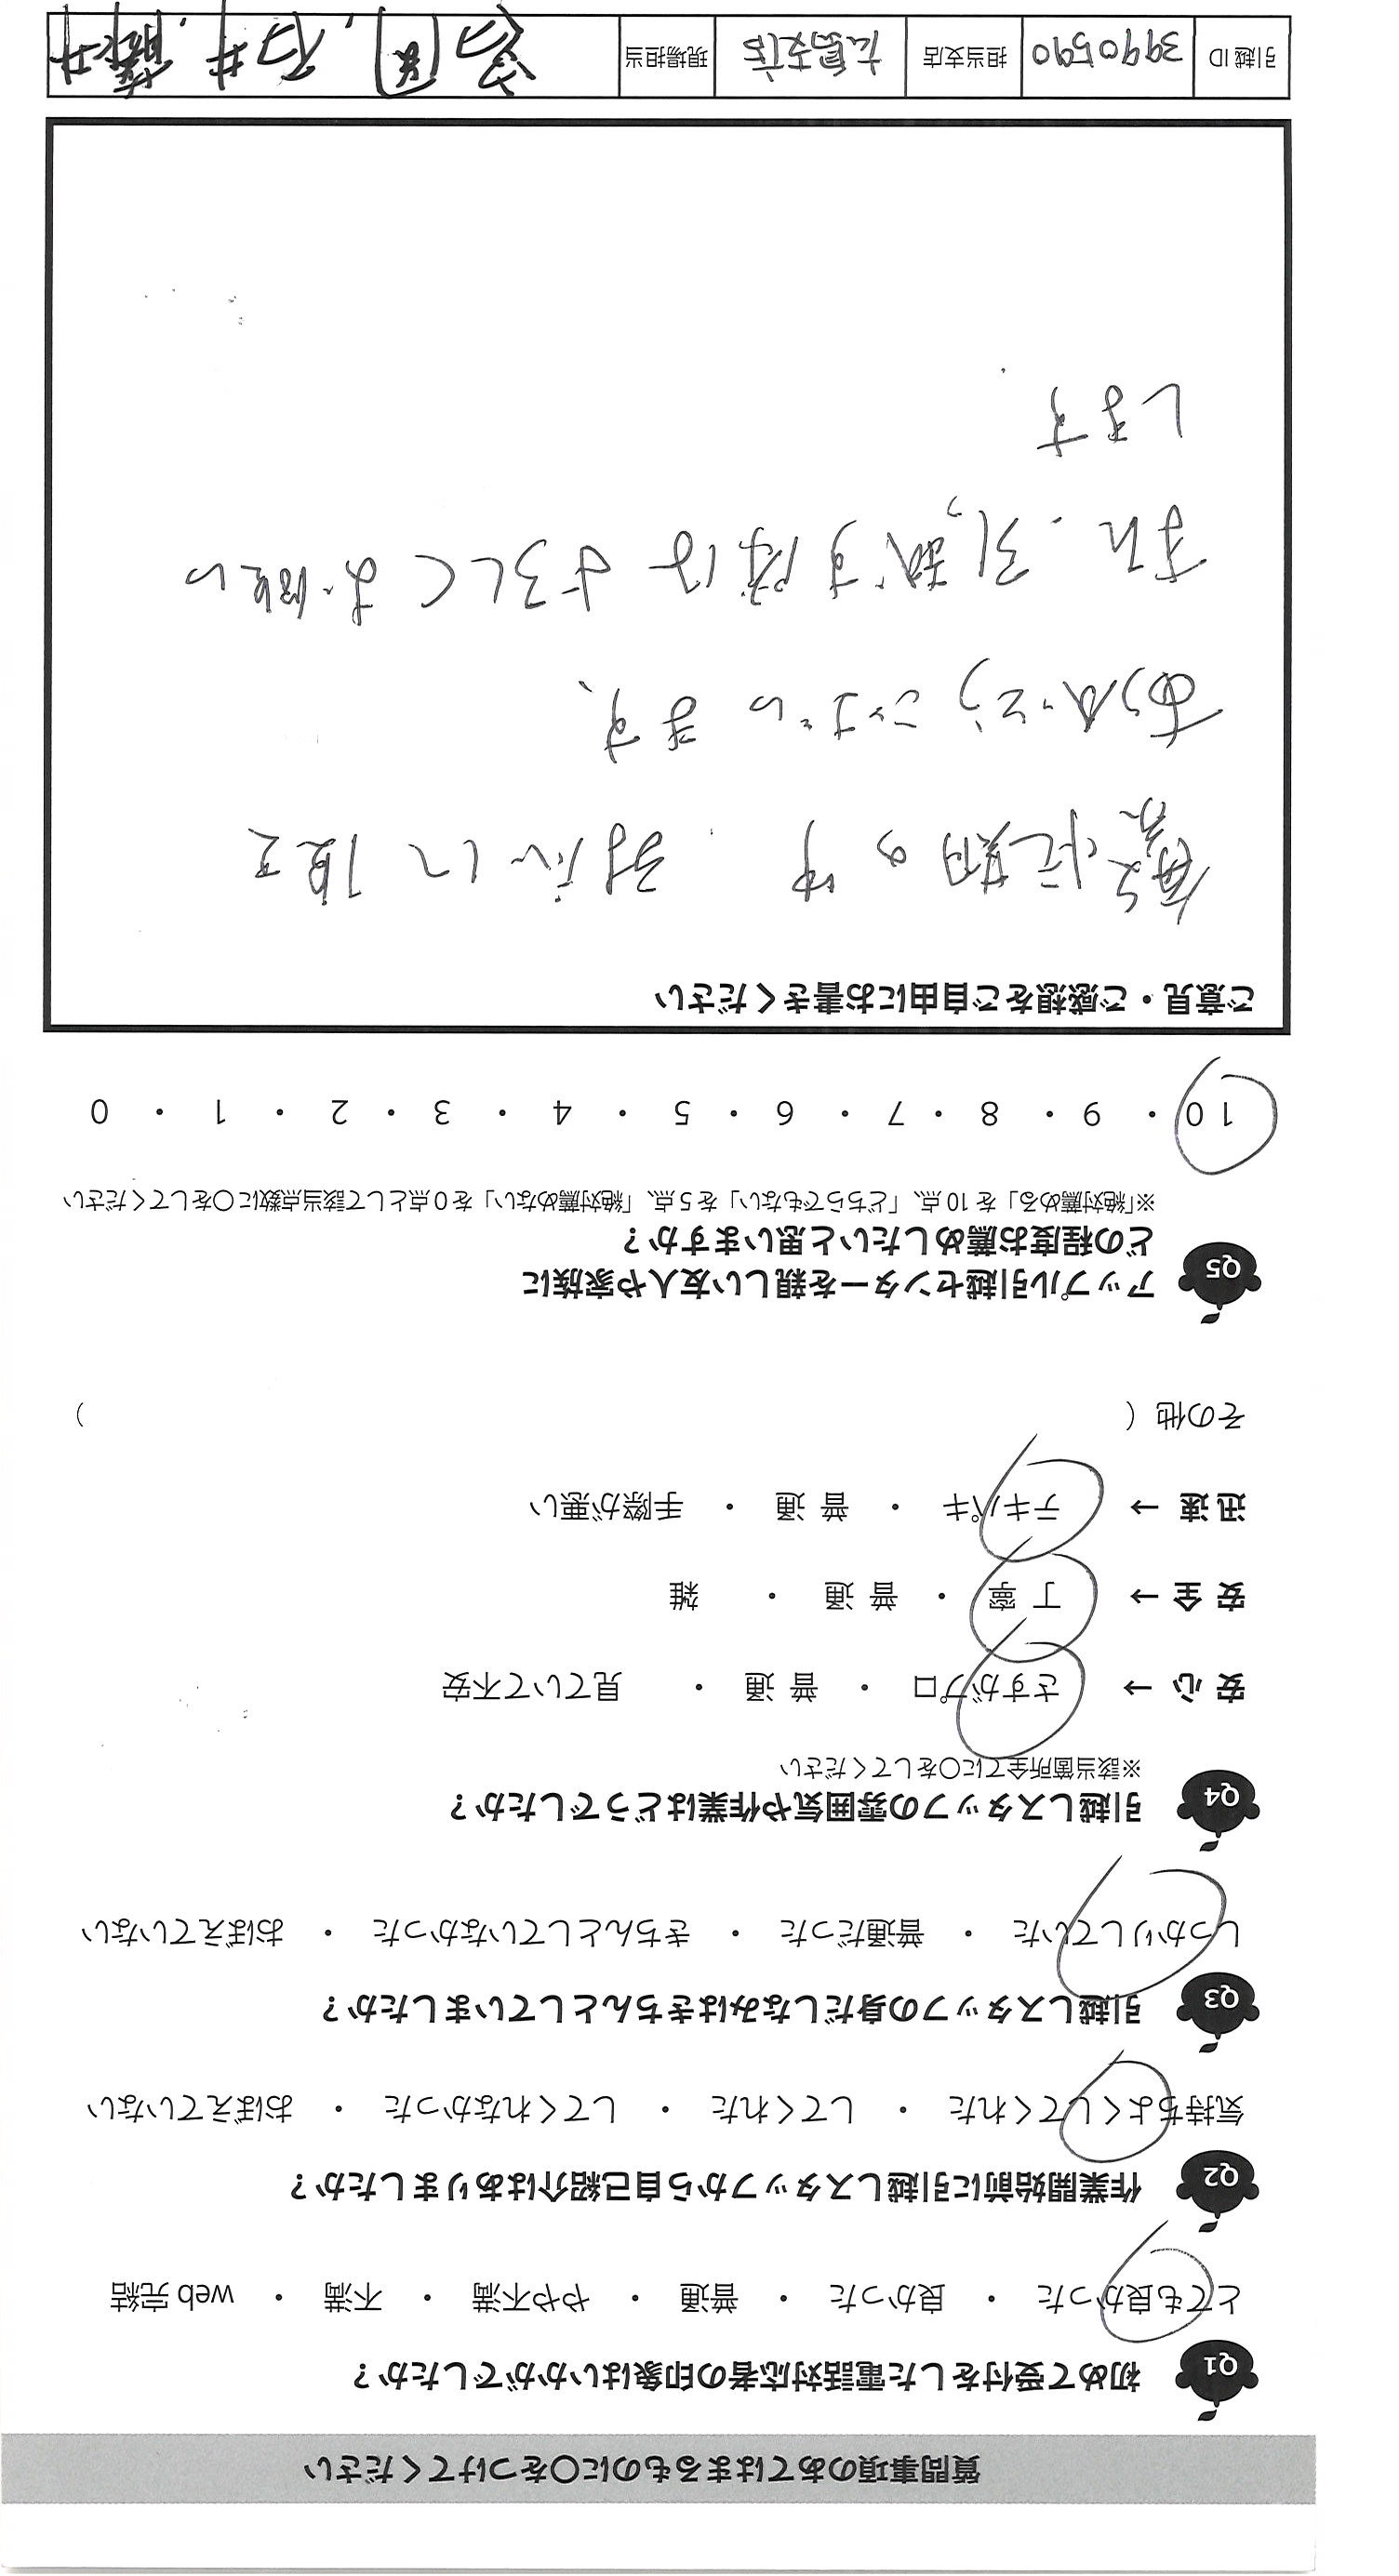 質問事項のあてはまるものに○をつけてください
Q1 初めて受付をした電話対応者の印象はいかがでしたか？
とても良かった ・ 良かった ・ 普通 ・ やや不満 ・ 不満 ・ web 完結
Q2 作業開始前に引越しスタッフから自己紹介はありましたか？
気持ちよくしてくれた ・ してくれた ・ してくれなかった ・ おぼえていない
Q3 引越しスタッフの身だしなみはきちんとしていましたか？
しっかりしていた ・ 普通だった ・ きちんとしていなかった ・ おぼえていない
Q4 引越しスタッフの雰囲気や作業はどうでしたか？
※該当箇所全てに○をしてください
安 心 → さすがプロ ・ 普 通 ・ 見ていて不安
安 全 → 丁 寧 ・ 普 通 ・ 雑
迅 速 → テキパキ ・ 普 通 ・ 手際が悪い
その他 ( )
Q5 アップル引越センターを親しい友人や家族に
どの程度お薦めしたいと思いますか？
※「絶対薦める」を 10 点、「どちらでもない」を 5 点、「絶対薦めない」を 0 点として該当点数に○をしてください
10 ・ 9 ・ 8 ・ 7 ・ 6 ・ 5 ・ 4 ・ 3 ・ 2 ・ 1 ・ 0
ご意見・ご感想をご自由にお書きください
繁忙期の中 対応して頂き
ありがとうございます、
また、引越す際は よろしくお願い
します
引越 ID 3990590 担当支店 広島支店 現場担当 石井 藤井